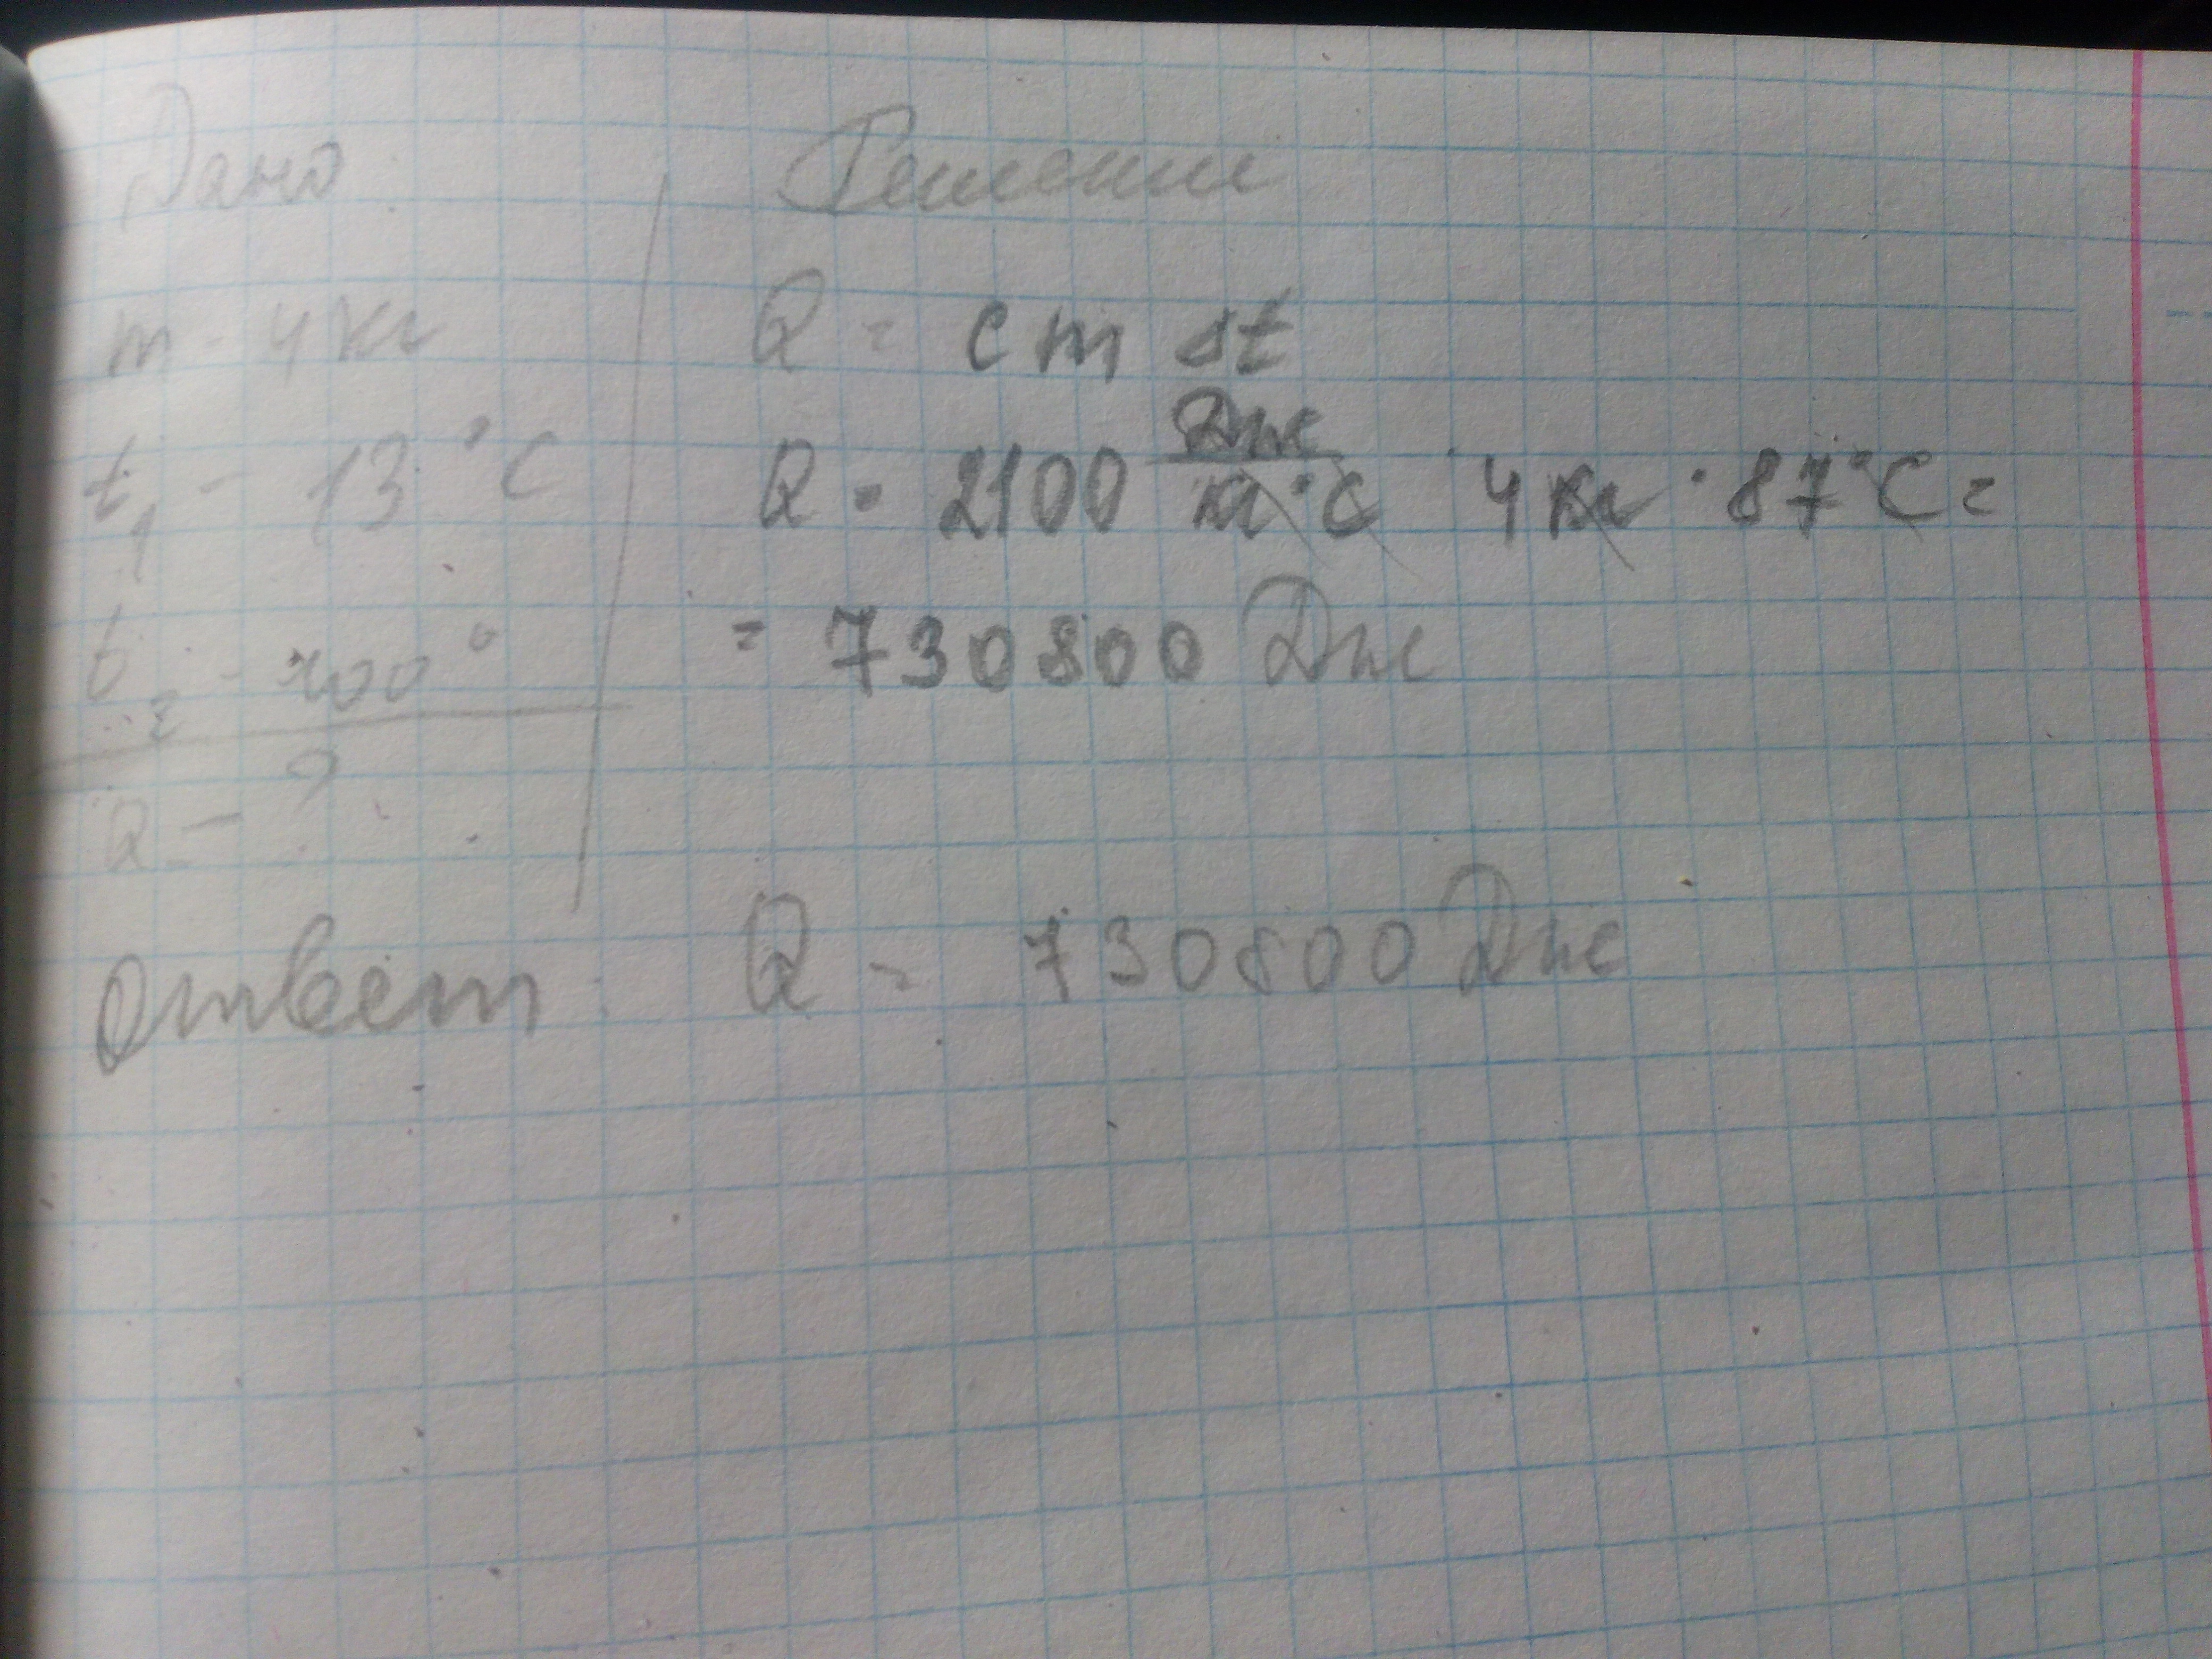 Дано:
m - 4 кг
t₁ - 13 °C
t₂ - 100°
Q - ?
Решение
Q = c m Δt
Q = 2100 Дж/кг·°C 4 кг · 87°C =
= 730800 Дж
Ответ: Q = 730800 Дж